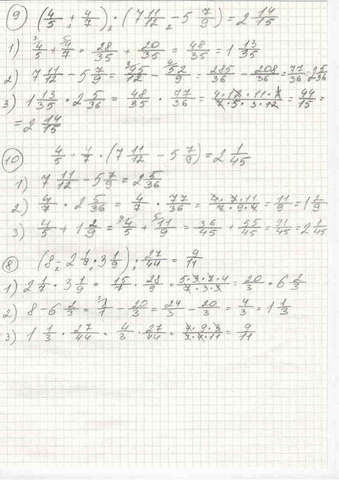 9) (4/5 + 4/7) · (7 11/12 - 5 7/9) = 2 14/15
1) 4/5 + 4/7 = 28/35 + 20/35 = 48/35 = 1 13/35
2) 7 11/12 - 5 7/9 = 95/12 - 52/9 = 285/36 - 208/36 = 77/36 = 2 5/36
3) 1 13/35 · 2 5/36 = 48/35 · 77/36 = 4·12·11·7/7·5·3·12 = 44/15 =
= 2 14/15
10) 4/5 + 4/7 · (7 11/12 - 5 7/9) = 2 1/45
1) 7 11/12 - 5 7/9 = 2 5/36
2) 4/7 · 2 5/36 = 4/7 · 77/36 = 4·7·11/7·9·4 = 11/9 = 1 2/9
3) 4/5 + 1 2/9 = 4/5 + 11/9 = 36/45 + 55/45 = 91/45 = 2 1/45
8) (8 - 2 1/7 · 3 1/9) · 27/44 = 9/11
1) 2 1/7 · 3 1/9 = 15/7 · 28/9 = 5·3·7·4/7·3·3 = 20/3 = 6 2/3
2) 8 - 6 2/3 = 8/1 - 20/3 = 24/3 - 20/3 = 4/3 = 1 1/3
3) 1 1/3 · 27/44 = 4/3 · 27/44 = 4·9·3/3·4·11 = 9/11